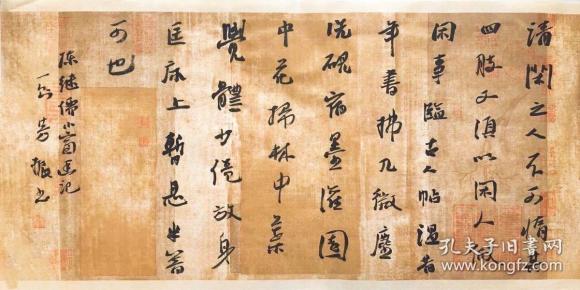 清閑之人不可惰其
四肢又須以閑人做
閑事臨古人帖溫昔
年書拂几微塵
洗硯宿墨灌園
中花掃林中葉
覺體少倦放身
匡床上暫息半晌
可也
陳繼儒小窗幽記
孔夫子旧书网
www.kongfz.com